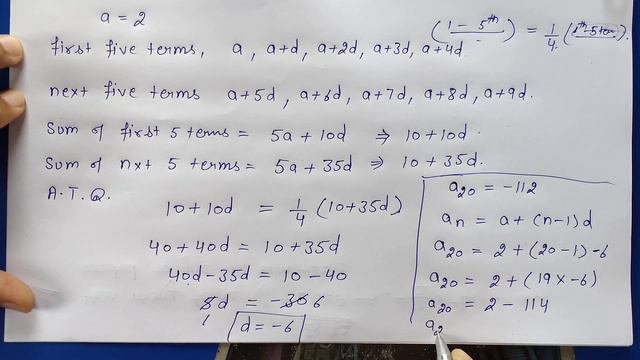 a = 2
(1 – 5th) = 1/4 (
first five terms, a, a+d, a+2d, a+3d, a+4d
next five terms a+5d, a+6d, a+7d, a+8d, a+9d.
Sum of first 5 terms = 5a + 10d ⇒ 10 + 10d.
Sum of nxt 5 terms = 5a + 35d ⇒ 10 + 35d.
A.T.Q.
10+10d = 1/4 (10+35d)
40 + 40d = 10 + 35d
40d – 35d = 10 – 40
5d = –30 6
1
d = –6
a20 = –112
an = a + (n–1)d
a20 = 2 + (20–1) –6
a20 = 2 + (19 × –6)
a20 = 2 – 114
a2